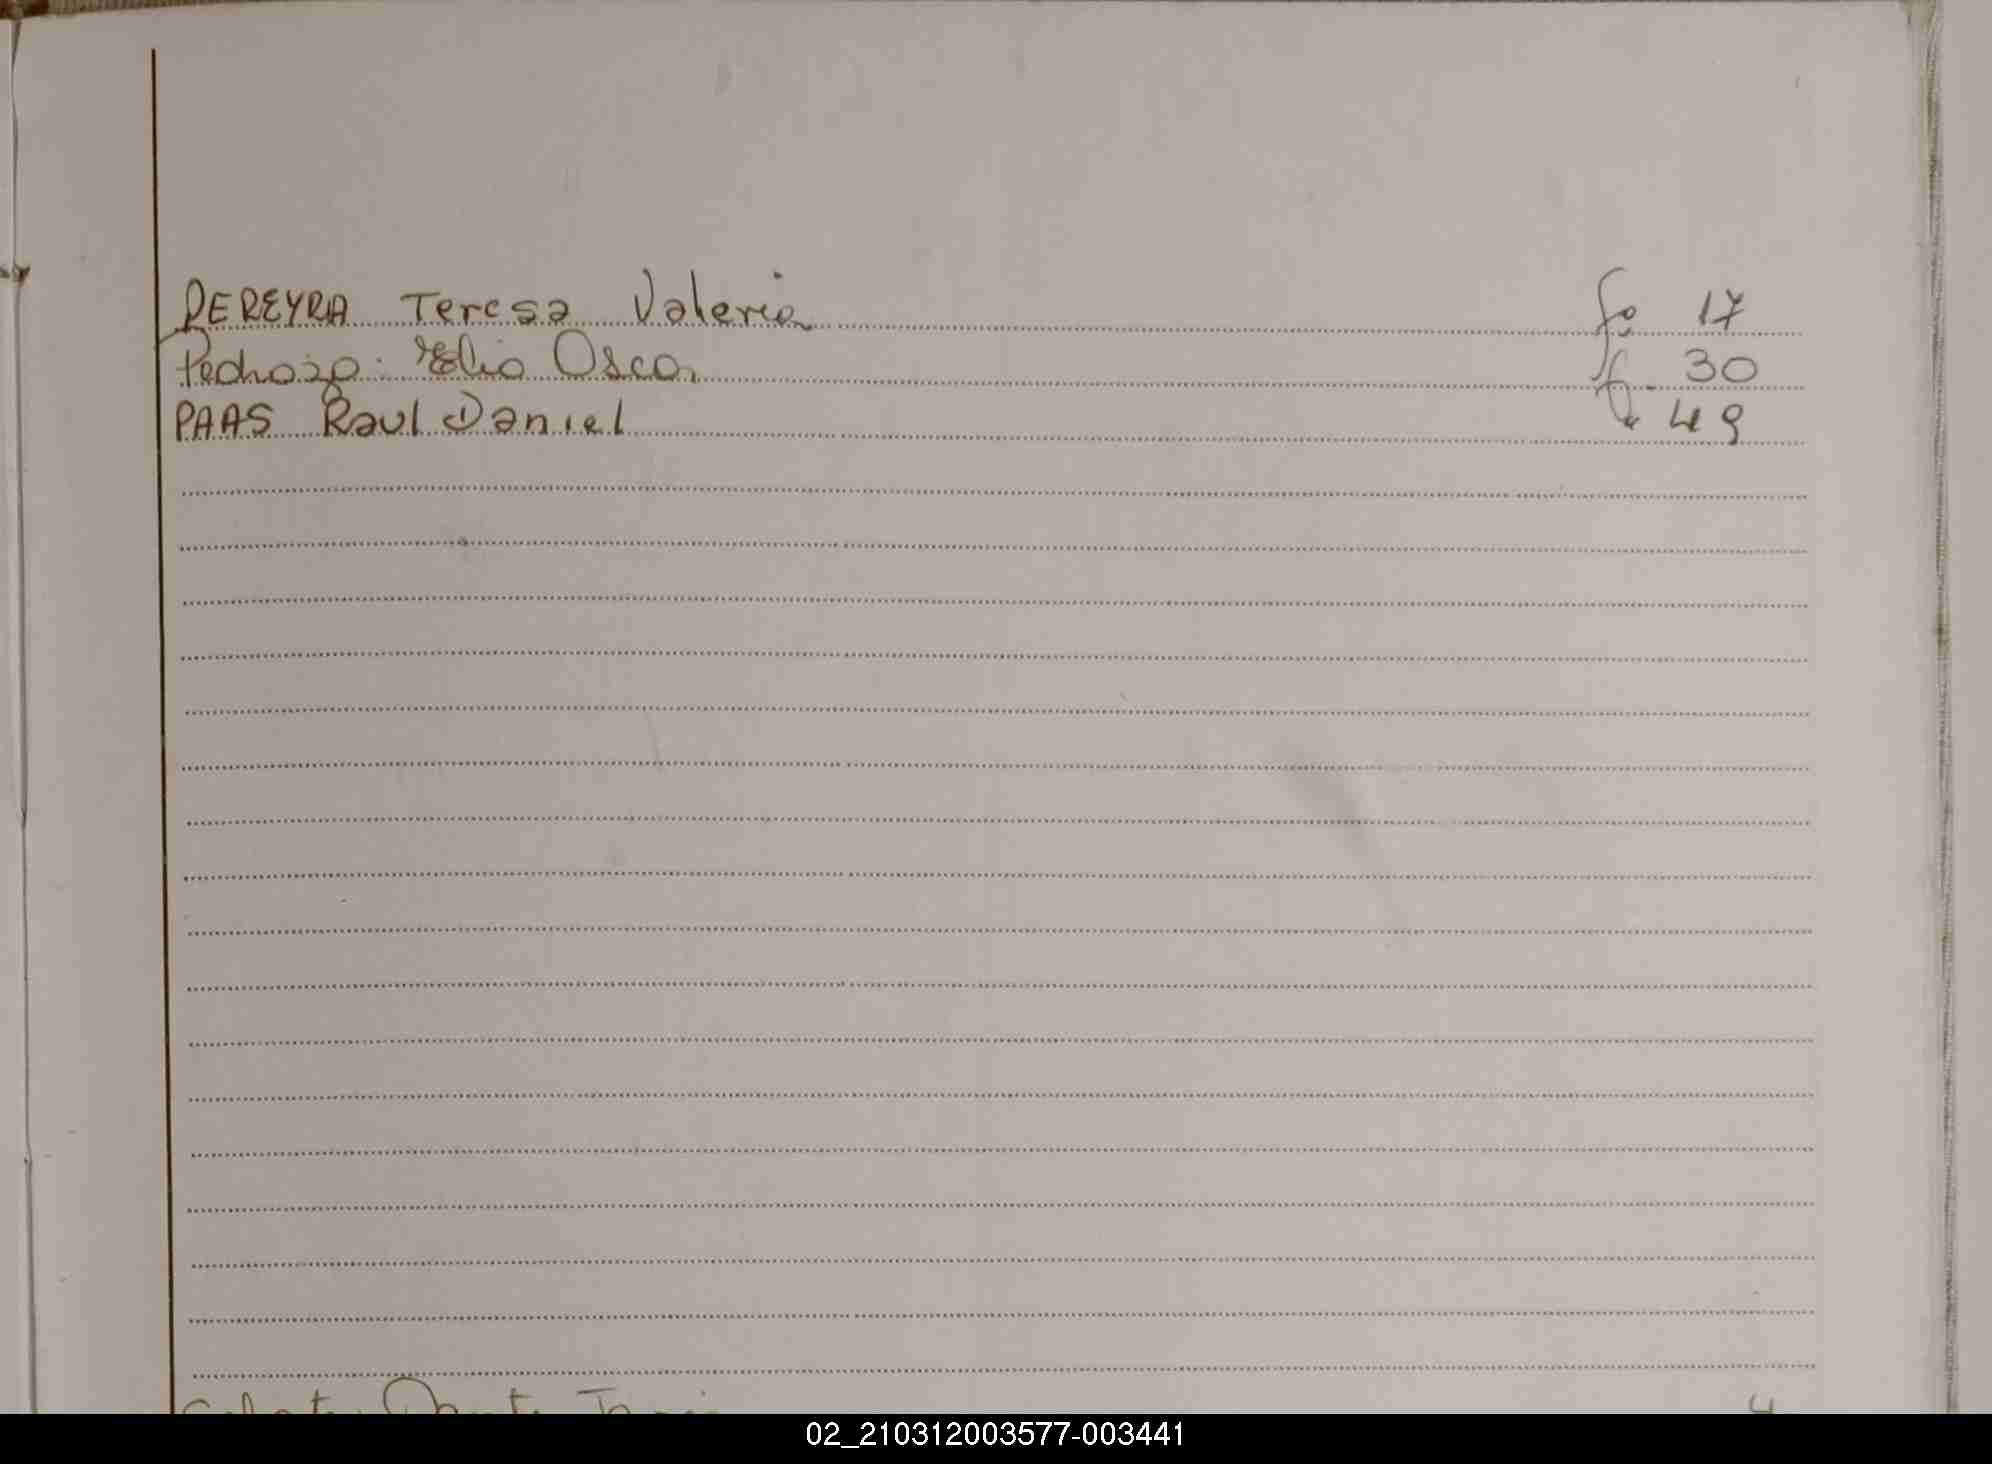 PEREYRA Teresa Valeria fo 17
Pedrozo Elio Oscar f. 30
PAAS Raul Daniel fo 49
02_210312003577-003441